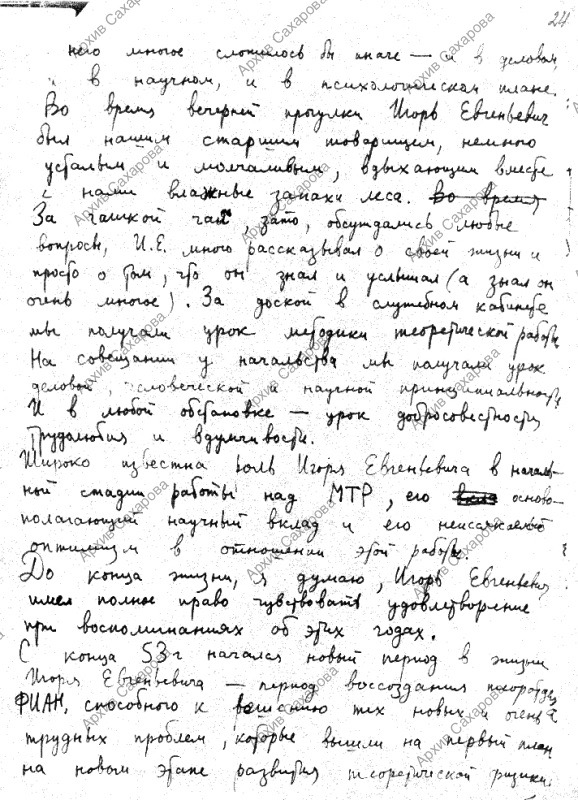 24
него многое сложилось бы иначе — и в деловом,
и в научном, и в психологическом плане.
Во время вечерней прогулки Игорь Евгеньевич
был нашим старшим товарищем, немного
усталым и молчаливым, вдыхающим вместе
с нами влажные запахи леса. Во время
За чашкой чая, зато, обсуждались любые
вопросы, И.Е. много рассказывал о своей жизни и
просто о том, что он знал и услышал (а знал он
очень многое). За доской в служебном кабинете
мы получали урок методики теоретической работы
На совещании у начальства мы получали урок
деловой, человеческой и научной принципиальности
И в любой обстановке — урок добросовестности
трудолюбия и вдумчивости.
Широко известна роль Игоря Евгеньевича в началь-
ной стадии работы над МТР, его осново-
полагающий научный вклад и его неиссякаемый
оптимизм в отношении этой работы.
До конца жизни, я думаю, Игорь Евгеньевич
имел полное право чувствовать удовлетворение
при воспоминаниях об этих годах.
С конца 53 г начался новый период в жизни
Игоря Евгеньевича — период воссоздания теоротдела
ФИАН, способного к решению тех новых и очень
трудных проблем, которые вышли на первый план
на новом этапе развития теоретической физики.
Архив Сахарова